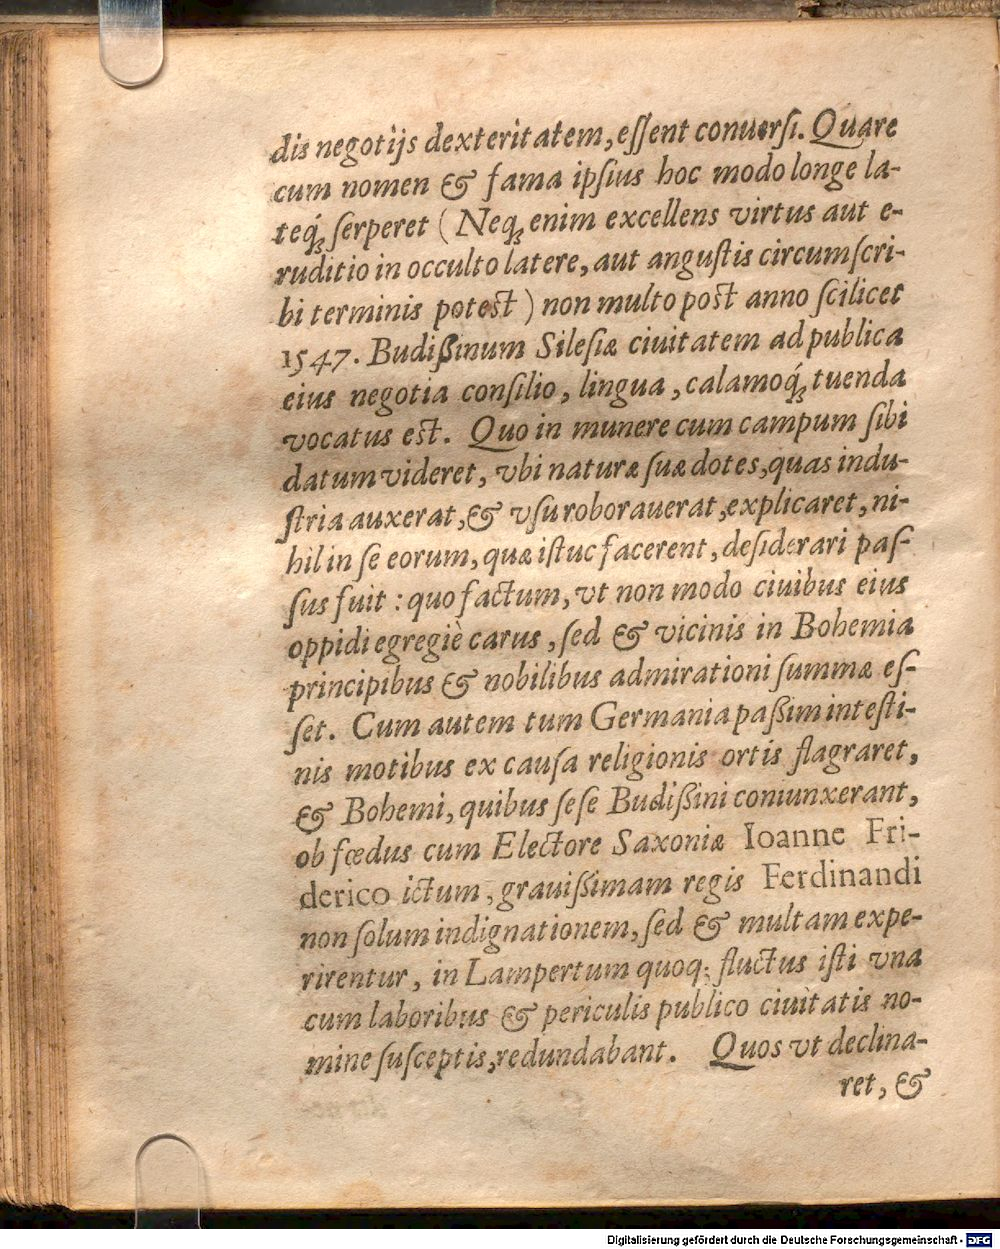 dis negotijs dexteritatem, eſſent conuerſi. Quare
cum nomen & fama ipſius hoc modo longe la-
teq́ꝫ ſerperet (Neqꝫ enim excellens virtus aut e-
ruditio in occulto latere, aut anguſtis circumſcri-
bi terminis potest) non multo post anno ſcilicet
1547. Budiſſinum Sileſiæ ciuitatem ad publica
eius negotia conſilio, lingua, calamoq́ꝫ tuenda
vocatus est. Quo in munere cum campum ſibi
datum videret, vbi naturæ ſuæ dotes, quas indu-
ſtria auxerat, & vſu roborauerat, explicaret, ni-
hil in ſe eorum, quæ iſtuc facerent, deſiderari paſ-
ſus fuit: quo factum, vt non modo ciuibus eius
oppidi egregiè carus, ſed & vicinis in Bohemia
principibus & nobilibus admirationi ſummæ eſ-
ſet. Cum autem tum Germania paſſim inteſti-
nis motibus ex cauſa religionis ortis flagraret,
& Bohemi, quibus ſeſe Budiſſini coniunxerant,
ob fœdus cum Electore Saxoniæ Ioanne Fri-
derico ictum, grauiſſimam regis Ferdinandi
non ſolum indignationem, ſed & multam expe-
rirentur, in Lampertum quoq; fluctus iſti vna
cum laboribus & periculis publico ciuitatis no-
mine ſuſceptis, redundabant. Quos vt declina-
ret, &
Digitalisierung gefördert durch die Deutsche Forschungsgemeinschaft - DFG